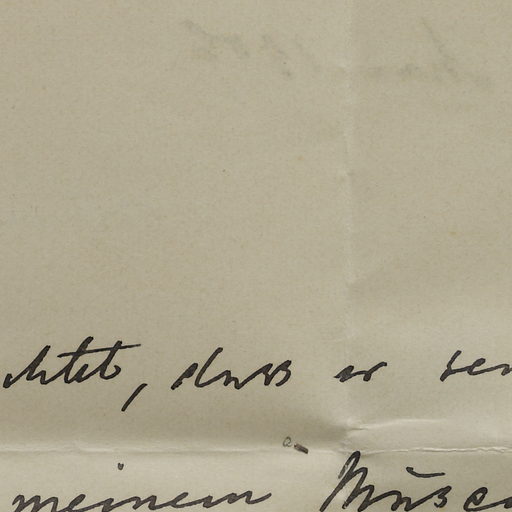 chtet, dass er sen
meinem Museu